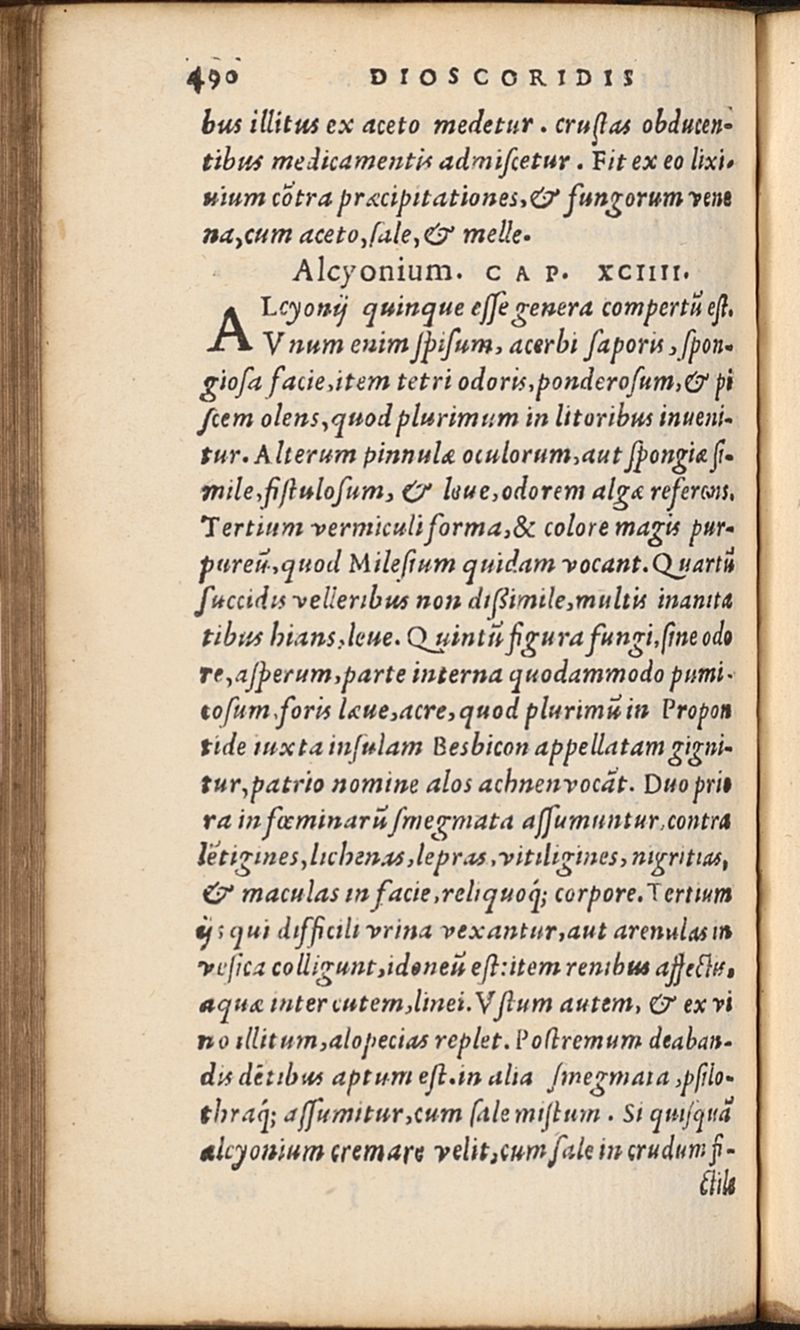 490 DIOSCORIDIS
bus illitus ex aceto medetur. crustas obducen-
tibus medicamentis admiscetur. Fit ex eo lixi-
uium cõtra præcipitationes, & fungorum vene
na, cum aceto, sale, & melle.
Alcyonium. CAP. XCIIII.
ALcyonij quinque esse genera compertũ est.
Vnum enim spisum, acerbi saporis, spon-
giosa facie, item tetri odoris, ponderosum, & pi
scem olens, quod plurimum in litoribus inueni-
tur. Alterum pinnulæ oculorum, aut spongiæ si-
mile, fistulosum, & leue, odorem algæ referens.
Tertium vermiculi forma, & colore magis pur-
pureũ, quod Milesium quidam vocant. Quartũ
succidis velleribus non dissimile, multis inanita
tibus hians, leue. Quintũ figura fungi, sine odo
re, asperum, parte interna quodammodo pumi-
cosum, foris læue, acre, quod plurimũ in Propon
tide iuxta insulam Besbicon appellatam gigni-
tur, patrio nomine alos achnen vocãt. Duo prio
ra in fœminarũ smegmata assumuntur, contra
lẽtigines, lichenas, lepras, vitiligines, nigritias,
& maculas in facie, reliquoq́; corpore. Tertium
ijs qui difficili vrina vexantur, aut arenulas in
vesica colligunt, idoneũ est: item renibus affectis,
aquæ inter cutem, linei. Vstum autem, & ex vi
no illitum, alopecias replet. Postremum deaban-
dis dẽtibus aptum est. in alia smegmata, psilo-
thraq́; assumitur, cum sale mistum. Si quisquã
alcyonium cremare velit, cum sale in crudum fi-
ctile